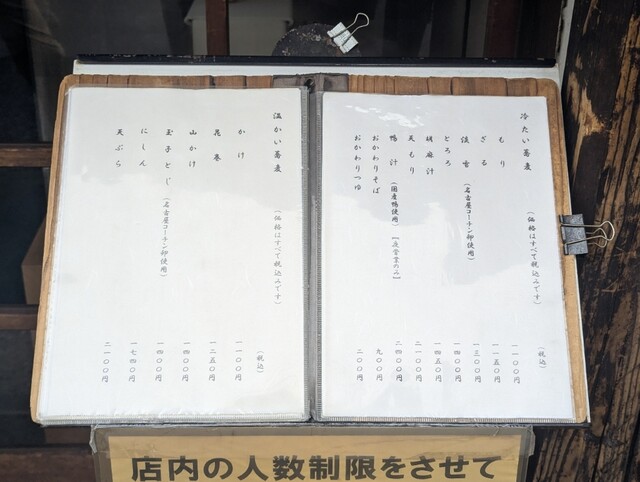 冷たい蕎麦 (価格はすべて税込みです) (税込)
もり 一一〇〇円
ざる 一一五〇円
淡雪 (名古屋コーチン卵使用) 一三〇〇円
とろろ 一四〇〇円
胡麻汁 一四五〇円
天もり 二一〇〇円
鴨汁 (国産鴨使用) 二四〇〇円
おかわりそば 九〇〇円
おかわりつゆ 二〇〇円
温かい蕎麦 (価格はすべて税込みです) (税込)
かけ 一一〇〇円
花巻 一二五〇円
山かけ 一四〇〇円
玉子とじ (名古屋コーチン卵使用) 一四〇〇円
にしん 一七四〇円
天ぷら 二一〇〇円
店内の人数制限をさせて